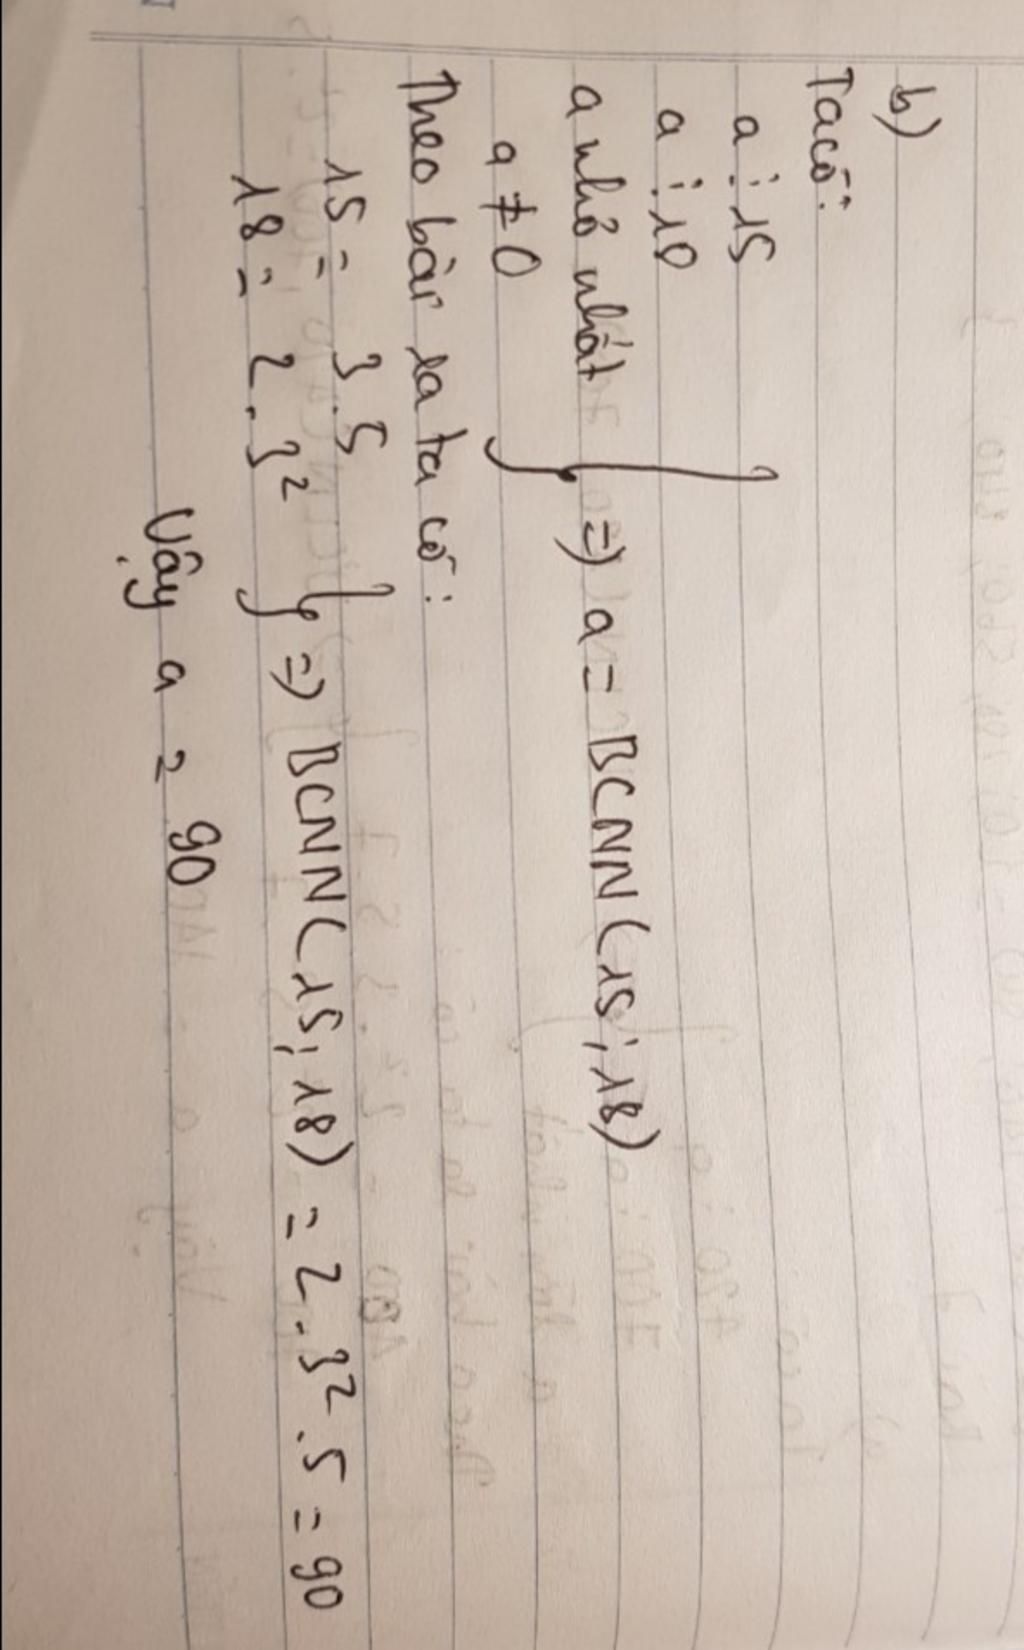 b)
Ta có:
a ⋮ 15
a ⋮ 18
a nhỏ nhất
a ≠ 0
} => a = BCNN(15; 18)
Theo bài ra ta có:
15 = 3.5
18 = 2.3²
} => BCNN(15; 18) = 2.3².5 = 90
Vậy a = 90